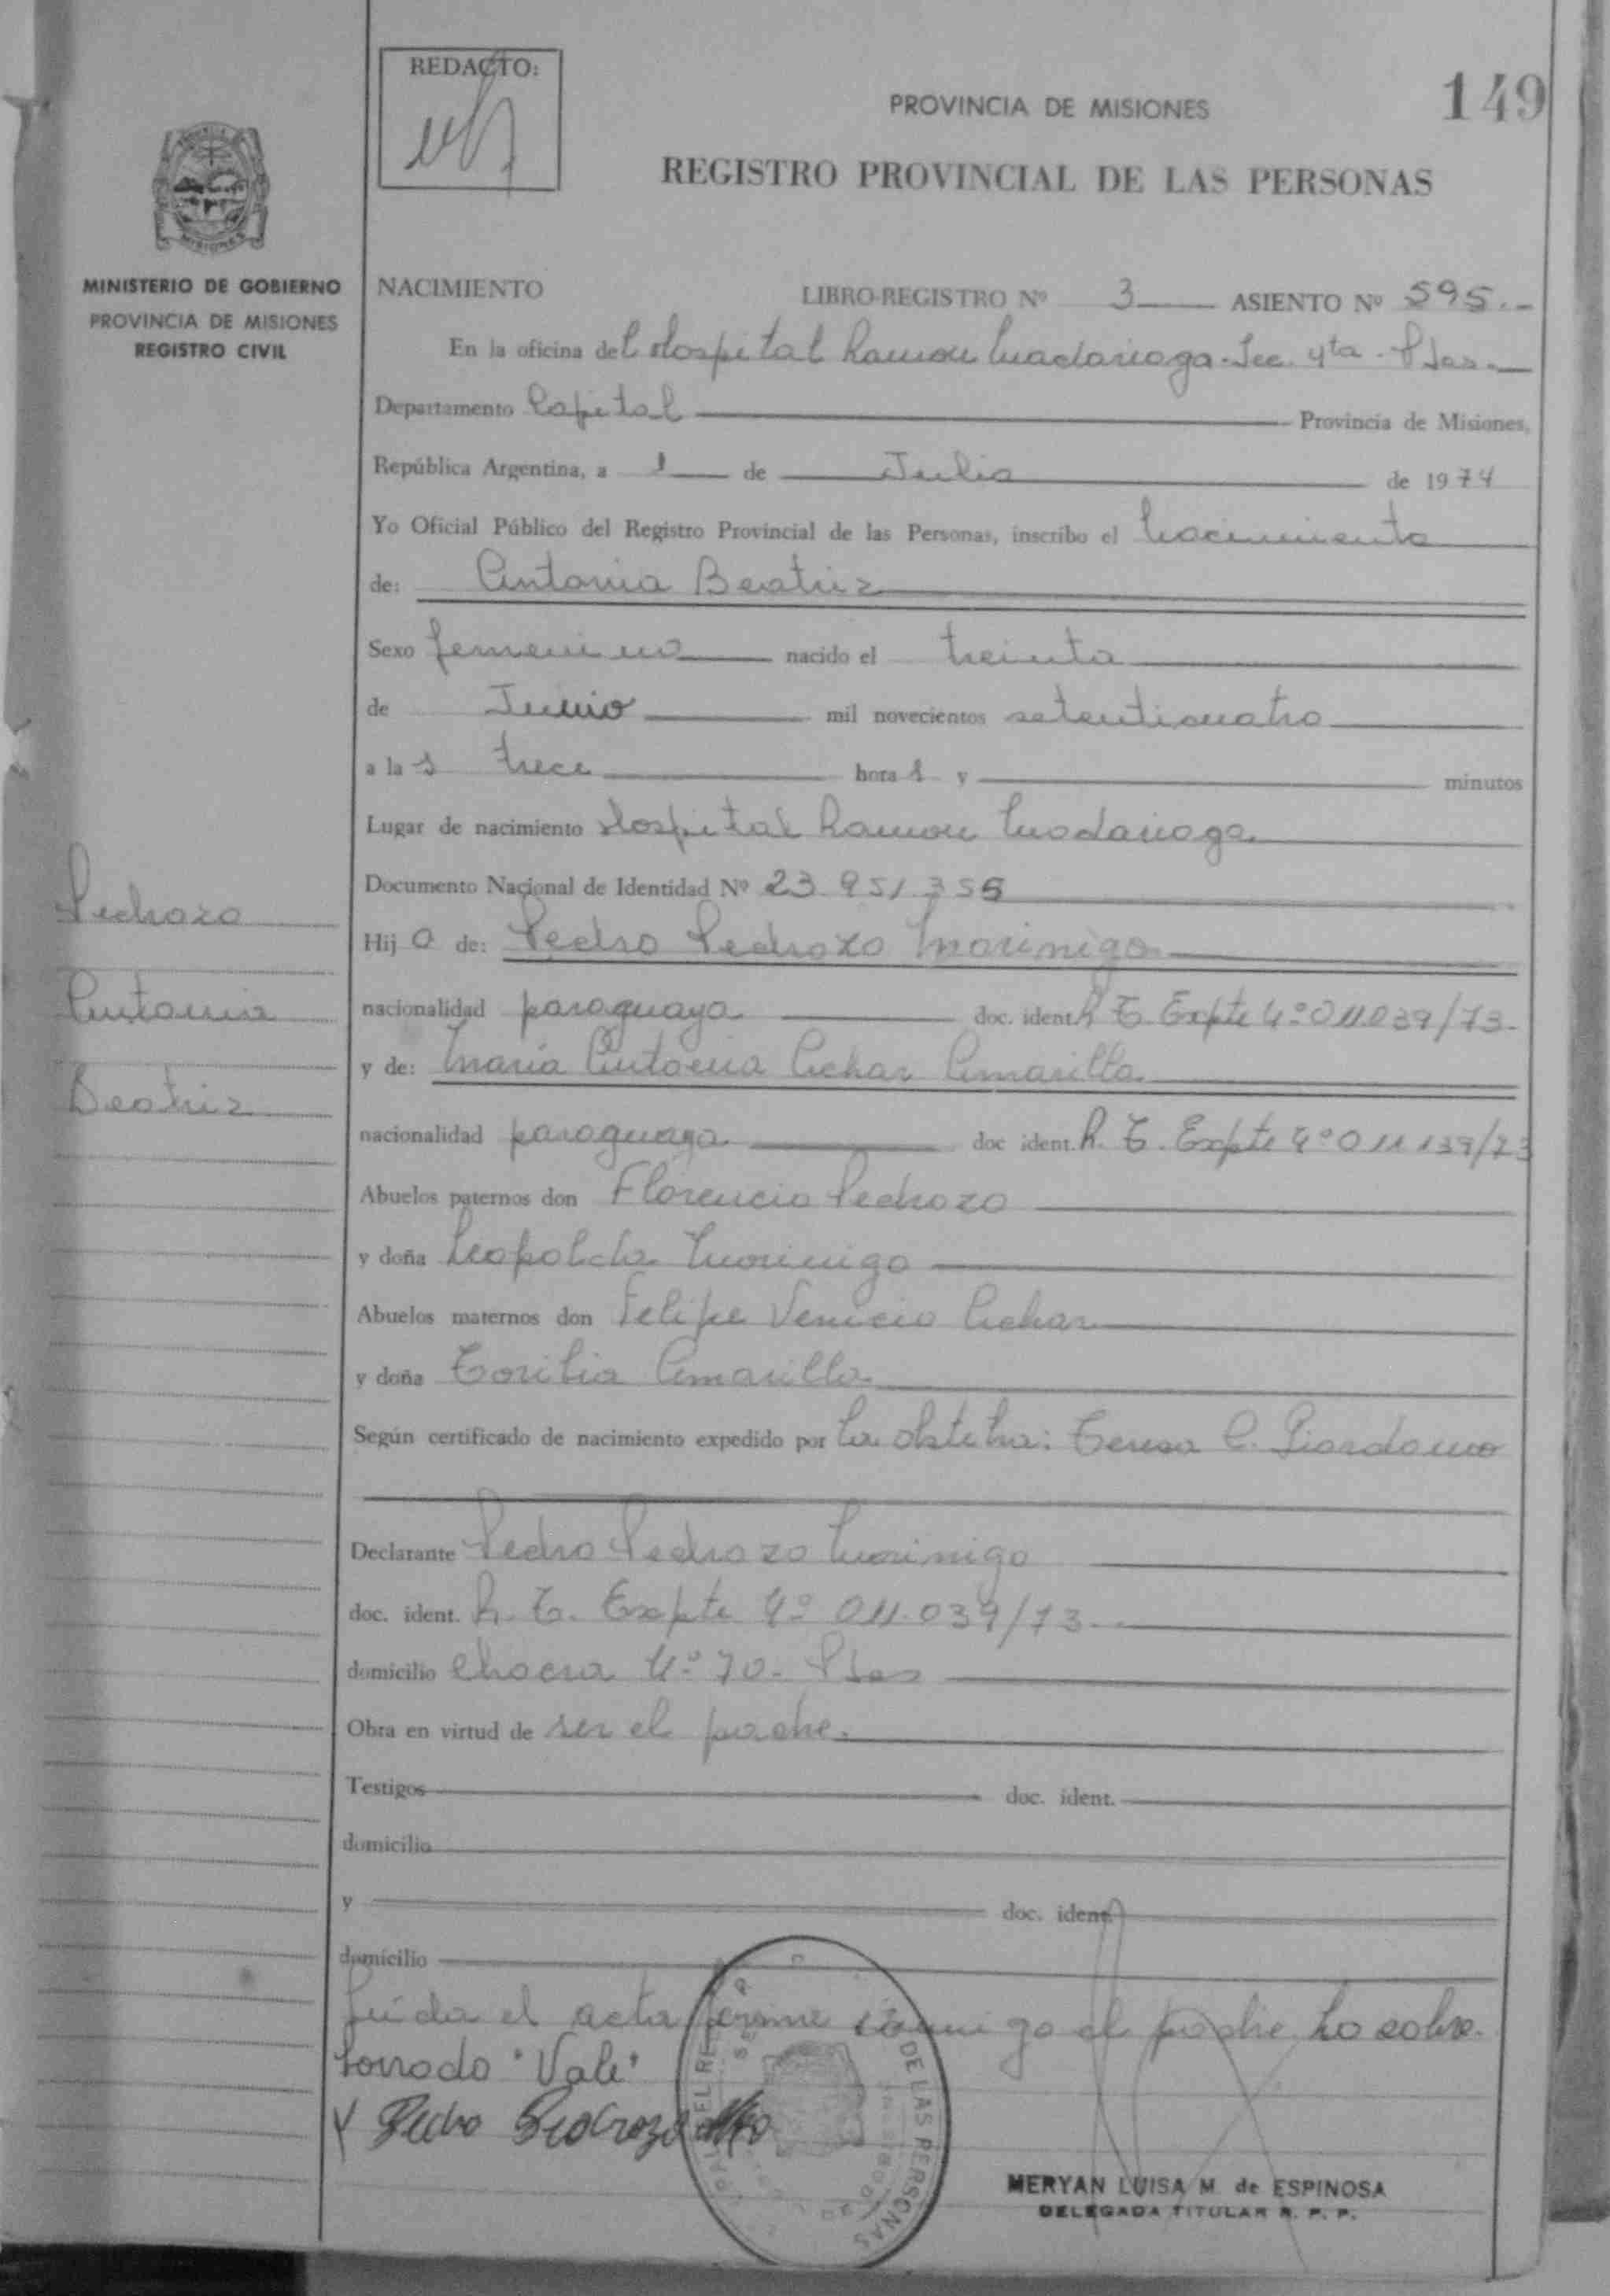 REDACTO:
149
PROVINCIA DE MISIONES
REGISTRO PROVINCIAL DE LAS PERSONAS
MISIONES
MINISTERIO DE GOBIERNO
PROVINCIA DE MISIONES
REGISTRO CIVIL
NACIMIENTO LIBRO-REGISTRO Nº 3 ASIENTO Nº 595.-
En la oficina del Hospital Ramon Madariaga-Sec. 4ta - Pdas.
Departamento Capital Provincia de Misiones,
República Argentina, a 1 de Julio de 1974
Yo Oficial Público del Registro Provincial de las Personas, inscribo el Nacimiento
de: Antonia Beatriz
Sexo femenino nacido el treinta
de Junio mil novecientos setenticuatro
a las trece horas y minutos
Lugar de nacimiento Hospital Ramon Madariaga
Documento Nacional de Identidad Nº 23.951.355
Hija de: Pedro Pedrozo Morinigo
nacionalidad paraguaya doc. ident. R. T. Expte Nº 011.039/73-
y de: Maria Antonia Achar Amarilla
nacionalidad paraguaya doc ident. R. T. Expte Nº 011139/73
Abuelos paternos don Florencio Pedrozo
y doña Leopolda Morinigo
Abuelos maternos don Felipe Venicio Achar
y doña Toribia Amarilla
Según certificado de nacimiento expedido por La obstetra: Teresa C. Giordano
Declarante Pedro Pedrozo Morinigo
doc. ident. R. T. Expte Nº 011.039/73
domicilio Chacra Nº 70- Pdas
Obra en virtud de ser el padre.
Testigos doc. ident.
domicilio
y doc. ident.
domicilio
Leida el acta firma conmigo el padre. Lo sobre-
borrado "Vale"
Pedro Pedrozo
DE LAS PERSONAS
MERYAN LUISA M. de ESPINOSA
DELEGADA TITULAR R. P. P.
Pedrozo
Antonia
Beatriz